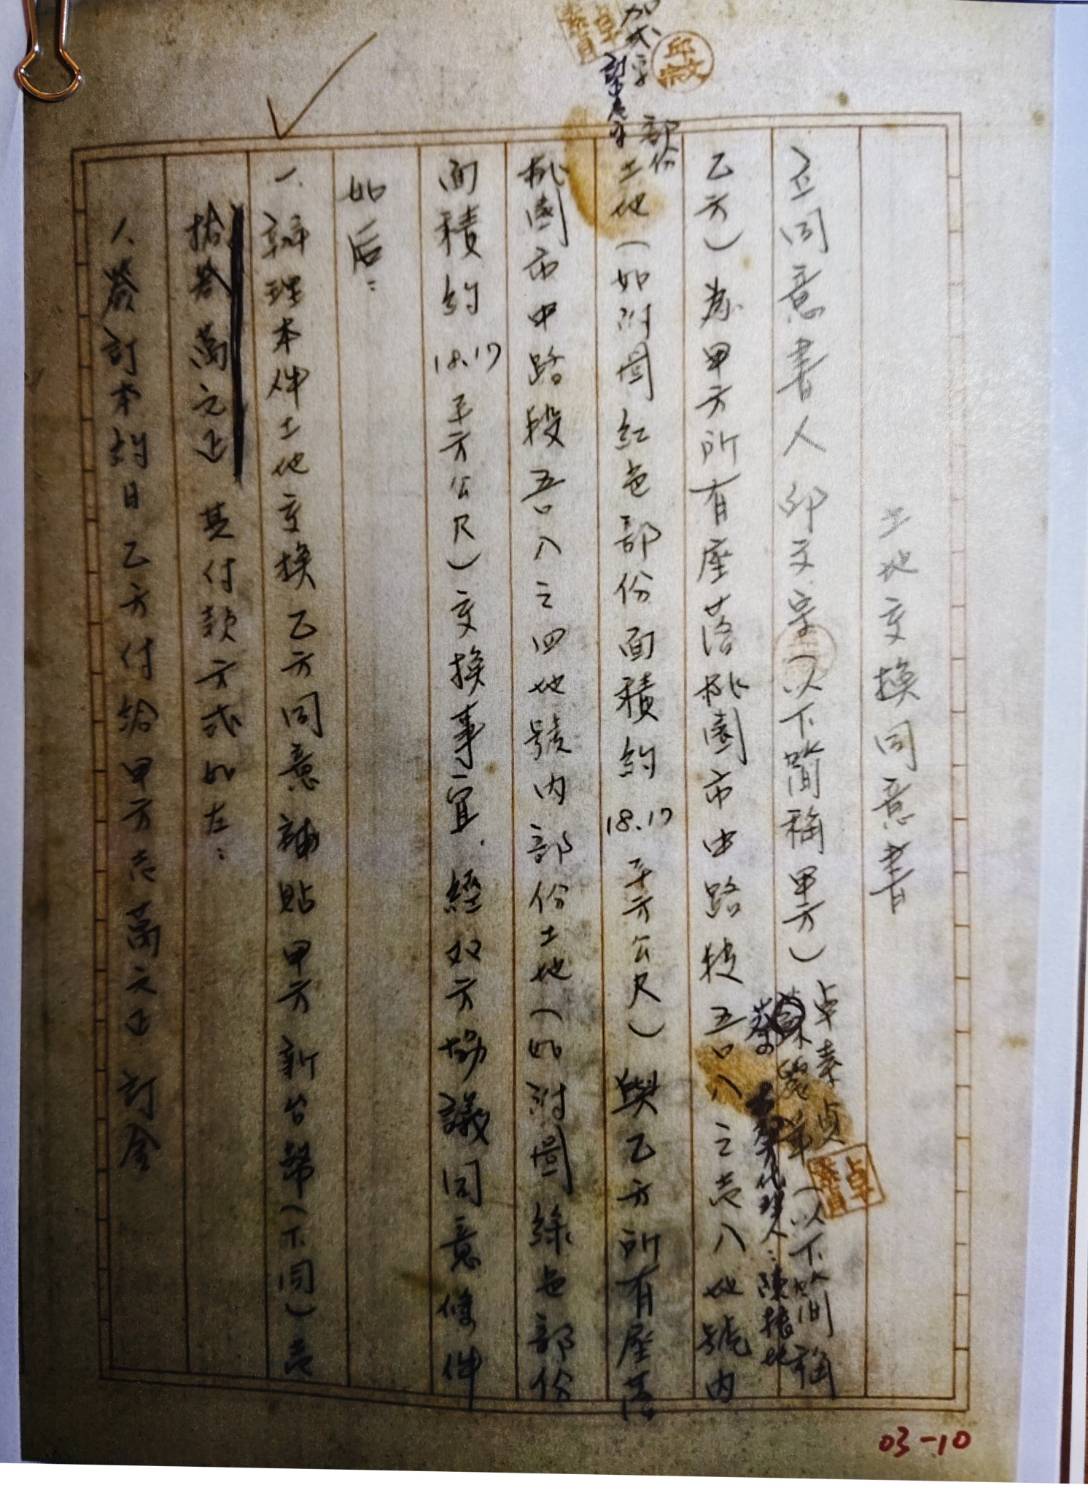 土地交換同意書
立同意書人邱文宗(以下簡稱甲方)卓素貞(以下簡稱
代理人:陳
乙方)為甲方所有座落桃園市中路段五八之壱八地號內
部份
土地(如附圖紅色部份面積約18.17平方公尺)與乙方所有座落
桃園市中路段五八之四地號內部份土地(如附圖綠色部份
面積約18.17平方公尺)交換事宜.經双方協議同意條件
如后:
一、辦理本件土地交換乙方同意補貼甲方新台幣(下同)壱
拾叁萬元正 其付款方式如左:
簽訂本約日乙方付給甲方壱萬元正訂金
加弍字
邱文宗
卓素貞
03-10